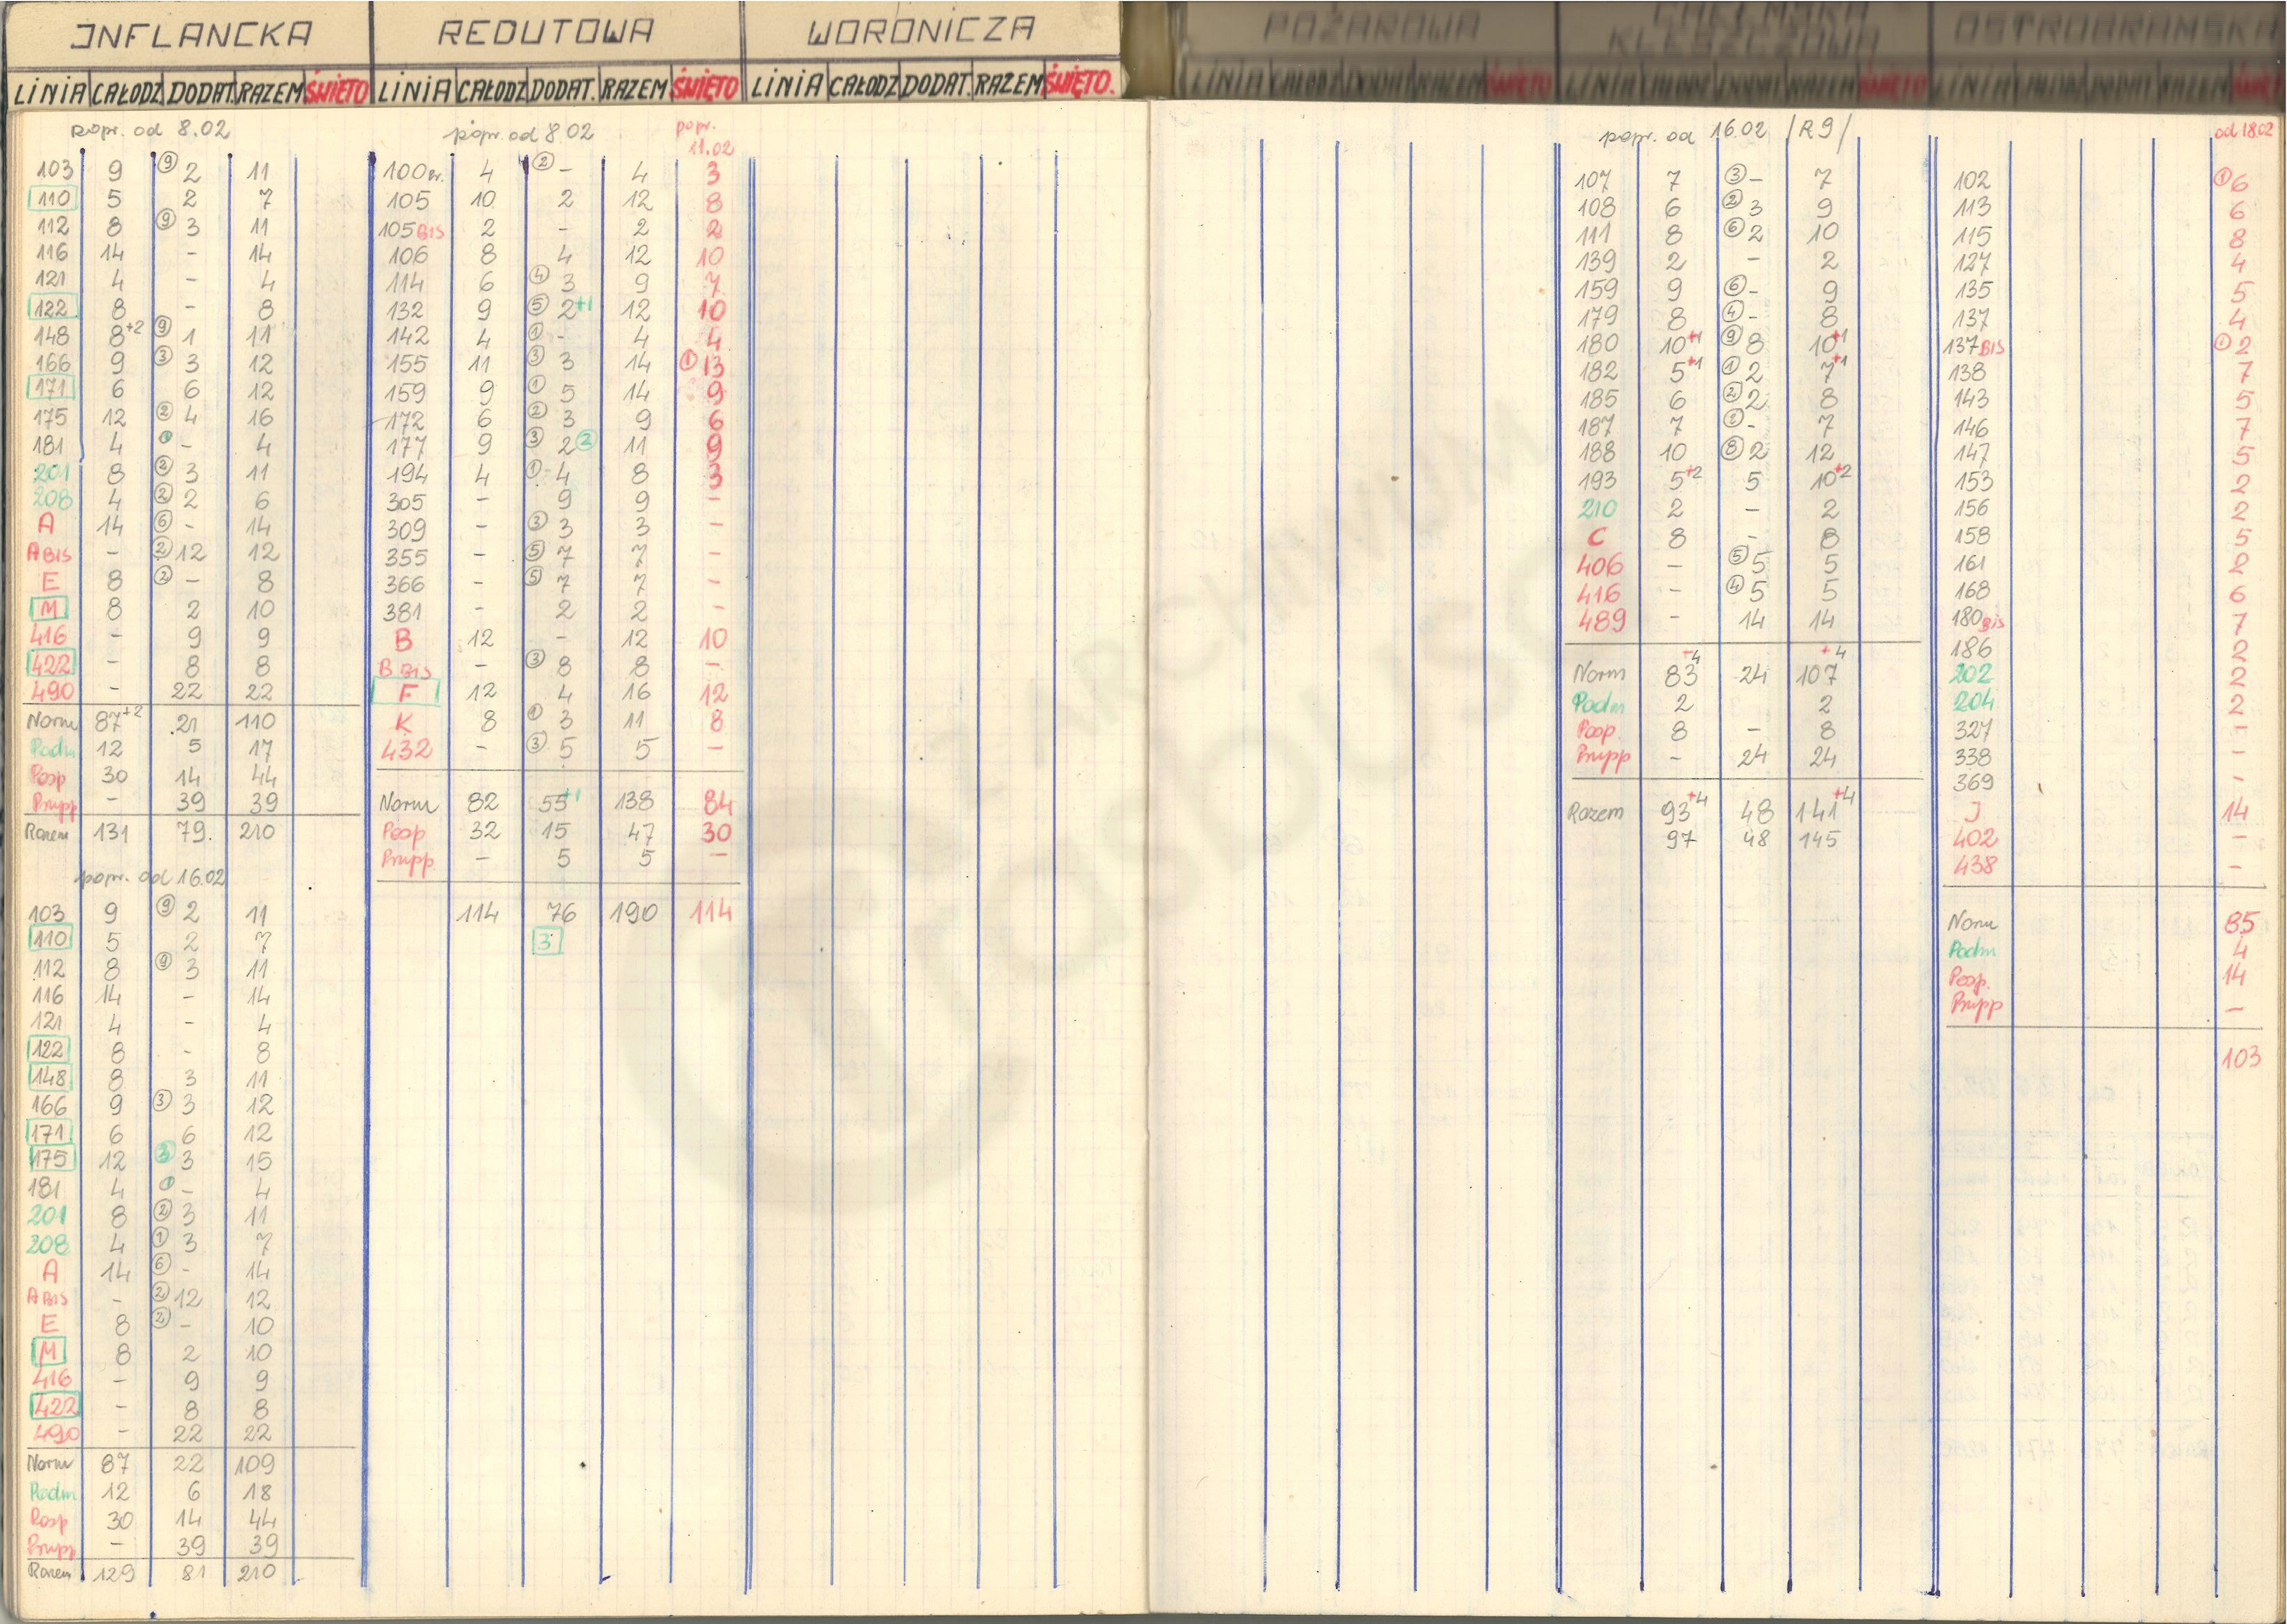 INFLANCKA
LINIA CAŁODZ DODAT. RAZEM ŚWIĘTO
popr. od 8.02
103 9 ⑨ 2 11
110 5 2 7
112 8 ⑨ 3 11
116 14 - 14
121 4 - 4
122 8 - 8
148 8+2 ⑨ 1 11
166 9 ③ 3 12
171 6 6 12
175 12 ② 4 16
181 4 ① - 4
201 8 ② 3 11
208 4 ② 2 6
A 14 ⑥ - 14
A BIS - ② 12 12
E 8 ② - 8
M 8 2 10
416 - 9 9
422 - 8 8
490 - 22 22
Norm 87+2 21 110
Podm 12 5 17
Posp 30 14 44
Prupp - 39 39
Razem 131 79. 210
popr. od 16.02
103 9 ⑨ 2 11
110 5 2 7
112 8 ⑨ 3 11
116 14 - 14
121 4 - 4
122 8 - 8
148 8 3 11
166 9 ③ 3 12
171 6 6 12
175 12 ③ 3 15
181 4 ① - 4
201 8 ② 3 11
208 4 ① 3 7
A 14 ⑥ - 14
A BIS - ② 12 12
E 8 ② - 10
M 8 2 10
416 - 9 9
422 - 8 8
490 - 22 22
Norm 87 22 109
Podm 12 6 18
Posp 30 14 44
Prupp - 39 39
Razem 129 81 210
REDUTOWA
LINIA CAŁODZ DODAT. RAZEM ŚWIĘTO
popr. od 8.02 popr. 11.02
100 Br. 4 ② - 4 3
105 10 2 12 8
105 BIS 2 - 2 2
106 8 4 12 10
114 6 ④ 3 9 7
132 9 ⑤ 2+1 12 10
142 4 ① - 4 4
155 11 ③ 3 14 ① 13
159 9 ① 5 14 9
172 6 ② 3 9 6
177 9 ③ 2 ② 11 9
194 4 ① 4 8 3
305 - 9 9 -
309 - ③ 3 3 -
355 - ⑤ 7 7 -
366 - ⑤ 7 7 -
381 - 2 2 -
B 12 - 12 10
B BIS - ③ 8 8 -
F 12 4 16 12
K 8 ① 3 11 8
432 - ③ 5 5 -
Norm 82 55+1 138 84
Posp 32 15 47 30
Prupp - 5 5 -
114 76 190 114
3
WORONICZA
LINIA CAŁODZ DODAT. RAZEM ŚWIĘTO.
POŻAROWA
LINIA CAŁODZ DODAT RAZEM ŚWIĘTO
KLESZCZOWA
LINIA CAŁODZ DODAT RAZEM ŚWIĘTO
popr. od 16.02 /R9/
107 7 ③ - 7
108 6 ② 3 9
111 8 ⑥ 2 10
139 2 - 2
159 9 ⑥ - 9
179 8 ④ - 8
180 10+1 ⑨ 8 10+1
182 5+1 ① 2 7+1
185 6 ② 2 8
187 7 ② - 7
188 10 ⑧ 2 12
193 5+2 5 10+2
210 2 - 2
C 8 - 8
406 - ⑤ 5 5
416 - ④ 5 5
489 - 14 14
Norm 83+4 24 107+4
Podm 2 2
Posp. 8 - 8
Prupp - 24 24
Razem 93+4 48 141+4
97 48 145
OSTROBRAMSKA
LINIA CAŁODZ DODAT RAZEM ŚWIĘT
od 18.02
102 ① 6
113 6
115 8
127 4
135 5
137 4
137 BIS ① 2
138 7
143 5
146 7
147 5
153 2
156 2
158 5
161 2
168 6
180 Bis 7
186 2
202 2
204 2
327 -
338 -
369 -
J 14
402 -
438 -
Norm 85
Podm 4
Posp. 14
Prupp -
103